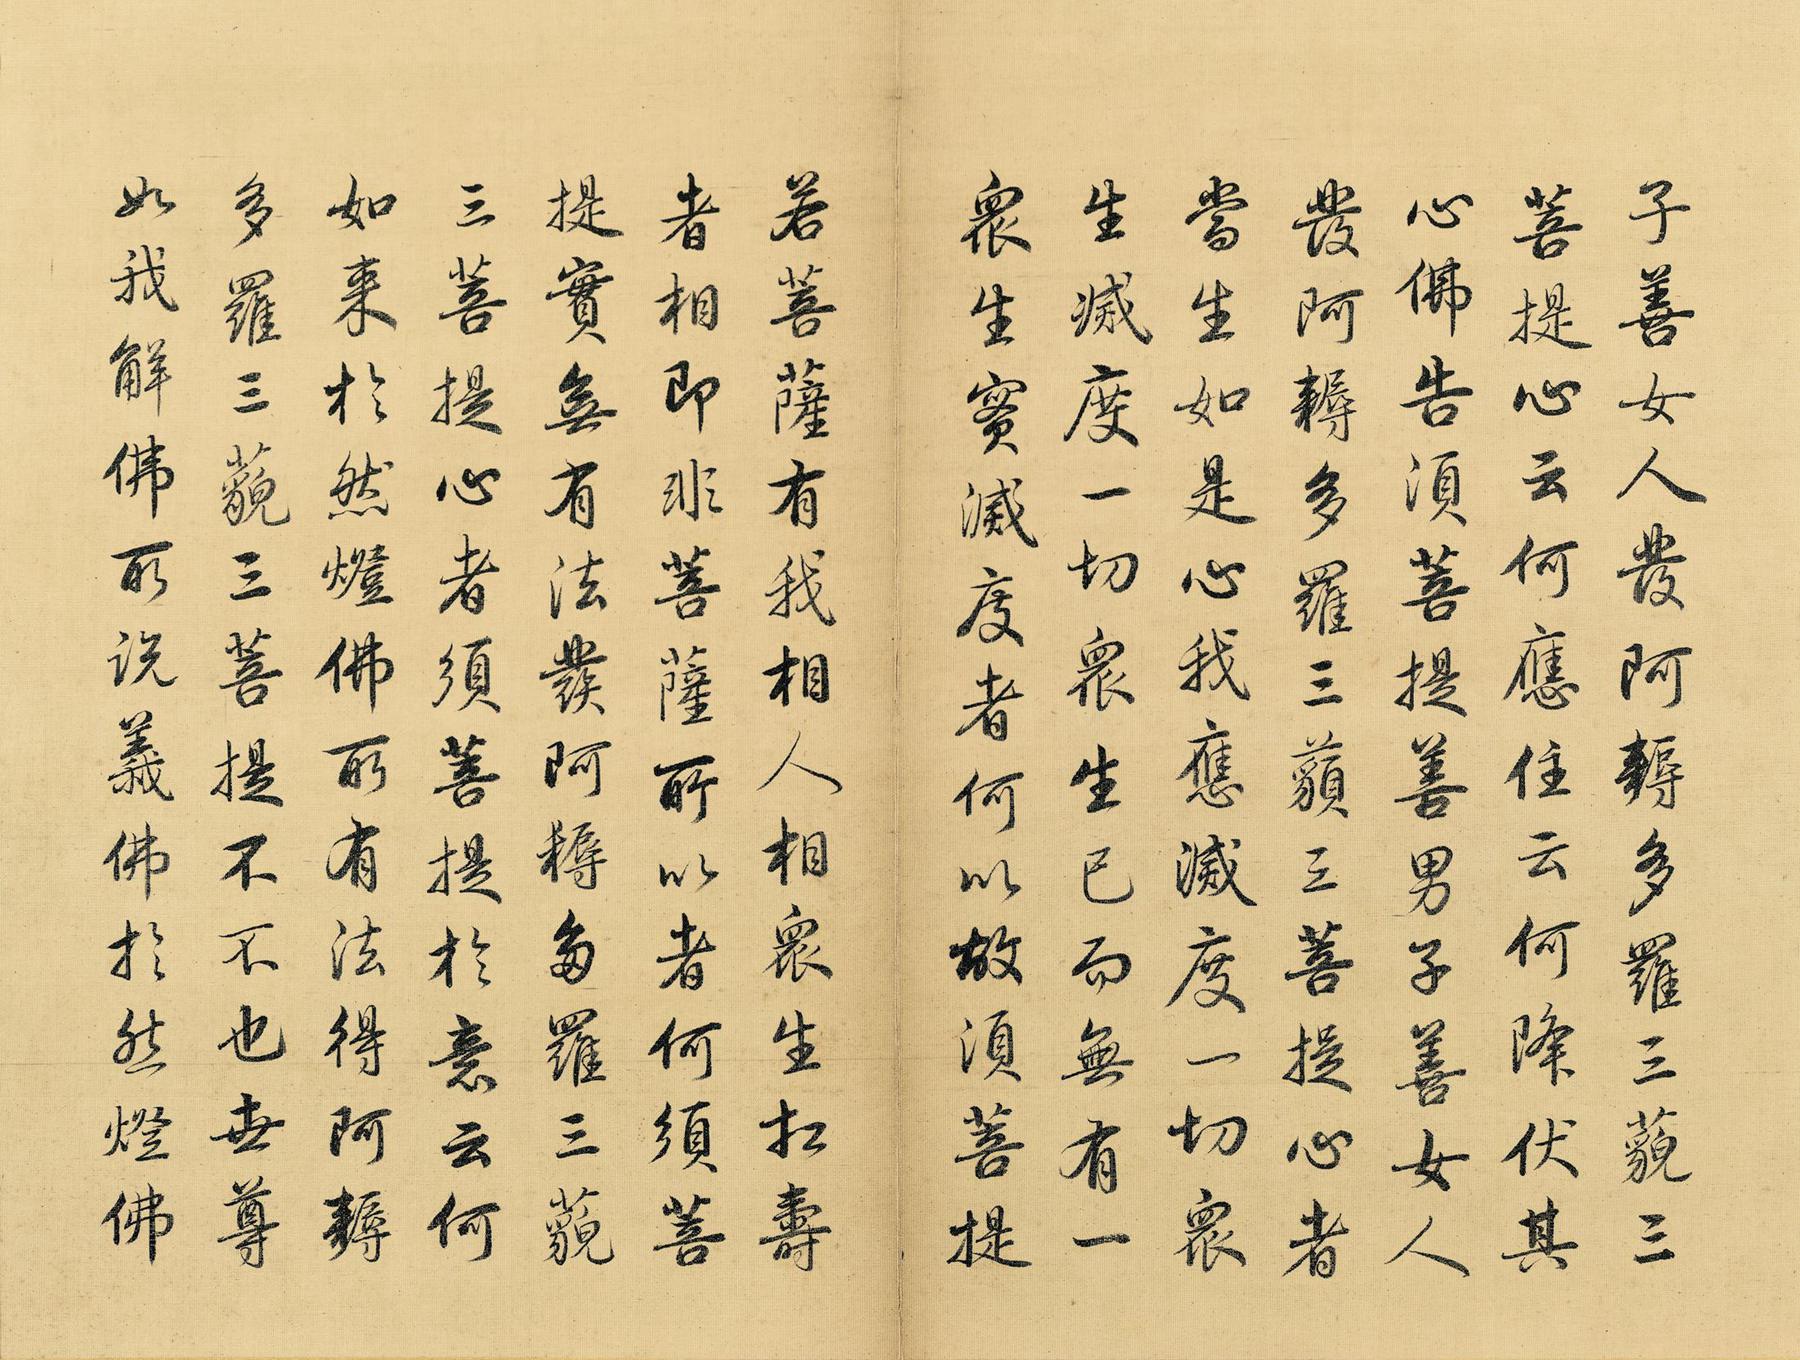 子善女人發阿耨多羅三藐三
菩提心云何應住云何降伏其
心佛告須菩提善男子善女人
發阿耨多羅三藐三菩提心者
當生如是心我應滅度一切眾
生滅度一切眾生已而無有一
眾生實滅度者何以故須菩提
若菩薩有我相人相眾生相壽
者相即非菩薩所以者何須菩
提實無有法發阿耨多羅三藐
三菩提心者須菩提於意云何
如来於然燈佛所有法得阿耨
多羅三藐三菩提不不也世尊
如我解佛所説義佛於然燈佛